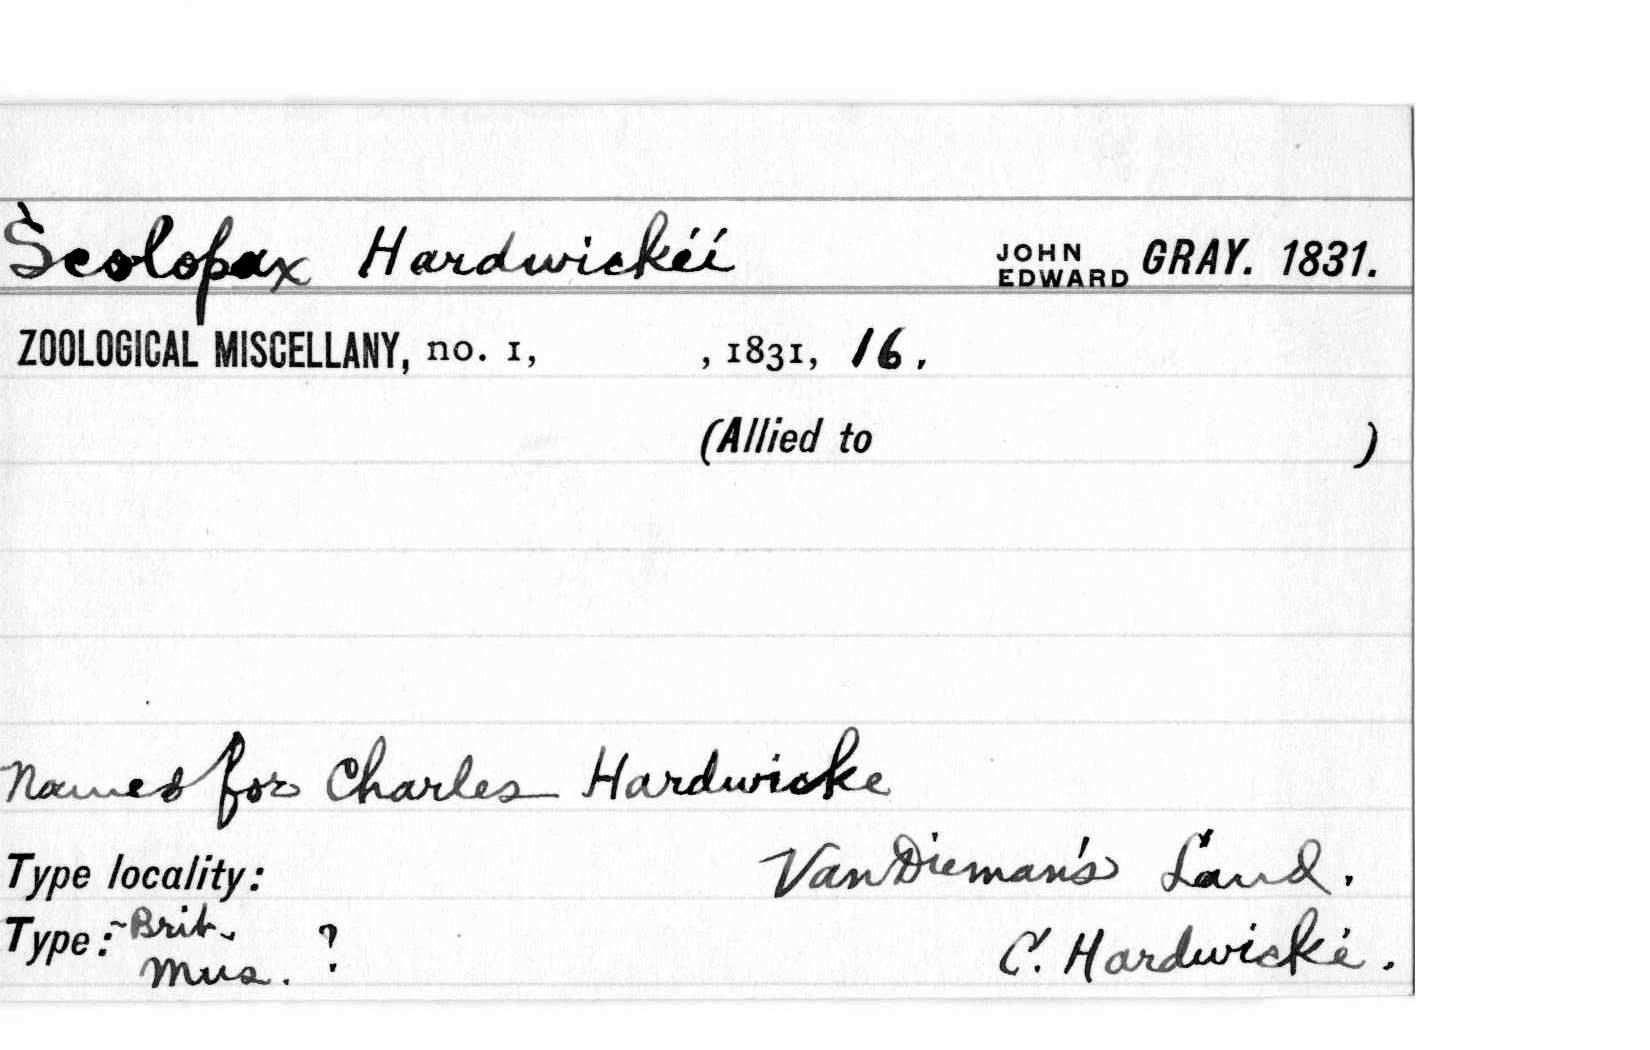 Scolopax Hardwickii JOHN EDWARD GRAY. 1831.
ZOOLOGICAL MISCELLANY, no. 1, , 1831, 16.
(Allied to )
Named for Charles Hardwicke
Type locality: Van Dieman's Land.
Type: Brit. Mus. ? C. Hardwicke.